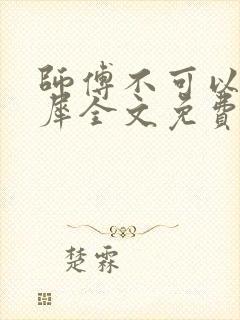 師傅不可以
犀全文免費
楚霖